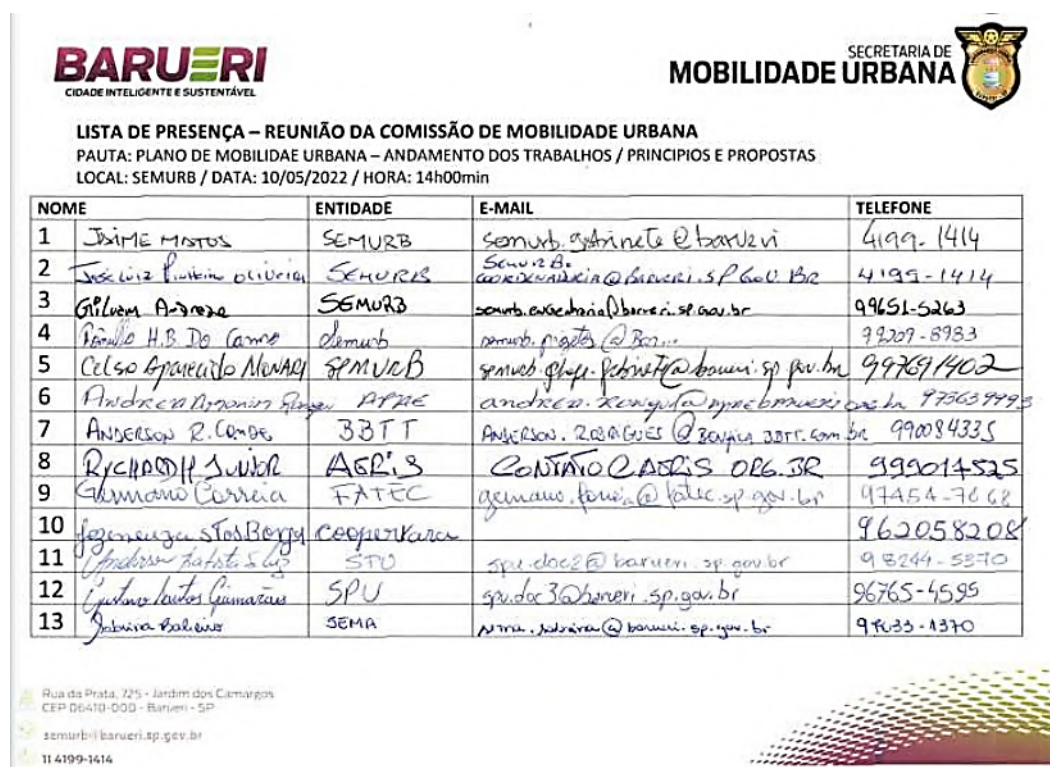 BARUERI
CIDADE INTELIGENTE E SUSTENTÁVEL
SECRETARIA DE
MOBILIDADE URBANA
LISTA DE PRESENÇA – REUNIÃO DA COMISSÃO DE MOBILIDADE URBANA
PAUTA: PLANO DE MOBILIDAE URBANA – ANDAMENTO DOS TRABALHOS / PRINCIPIOS E PROPOSTAS
LOCAL: SEMURB / DATA: 10/05/2022 / HORA: 14h00min
NOME ENTIDADE E-MAIL TELEFONE
1 JAIME MATOS SEMURB semurb.gabinete@barueri 4199-1414
2 José Luiz Pinheiro oliveira SEMURB SEMURB.
COORDENADORIA@BARUERI.SP.GOV.BR 4199-1414
3 Gilvem SEMURB semurb.engenharia@barueri.sp.gov.br 99651-5263
4 H.B. Do Carmo Semurb semurb.projetos@Bar... 99209-8983
5 Celso Aparecido SEMURB semurb.chefe.gabinete@barueri.sp.gov.br 997691402
6 Andrea APAE 975639993
7 ANDERSON R. CONDE BBTT ANDERSON.RODRIGUES@BENFICABBTT.com.br 990084335
8 JUNIOR AGRIS 999014525
9 Germano Correia FATEC 97454-7668
10 Coopertara 962058208
11 Anderson Batista S Luz SPU spu.doc2@barueri.sp.gov.br 98244-5370
12 Gustavo Santos Guimarães SPU spu.doc3@barueri.sp.gov.br 96765-4595
13 Sabrina Baleiro SEMA
Rua da Prata, 725 - Jardim dos Camargos
CEP 06410-000 - Barueri - SP
semurb@barueri.sp.gov.br
11 4199-1414